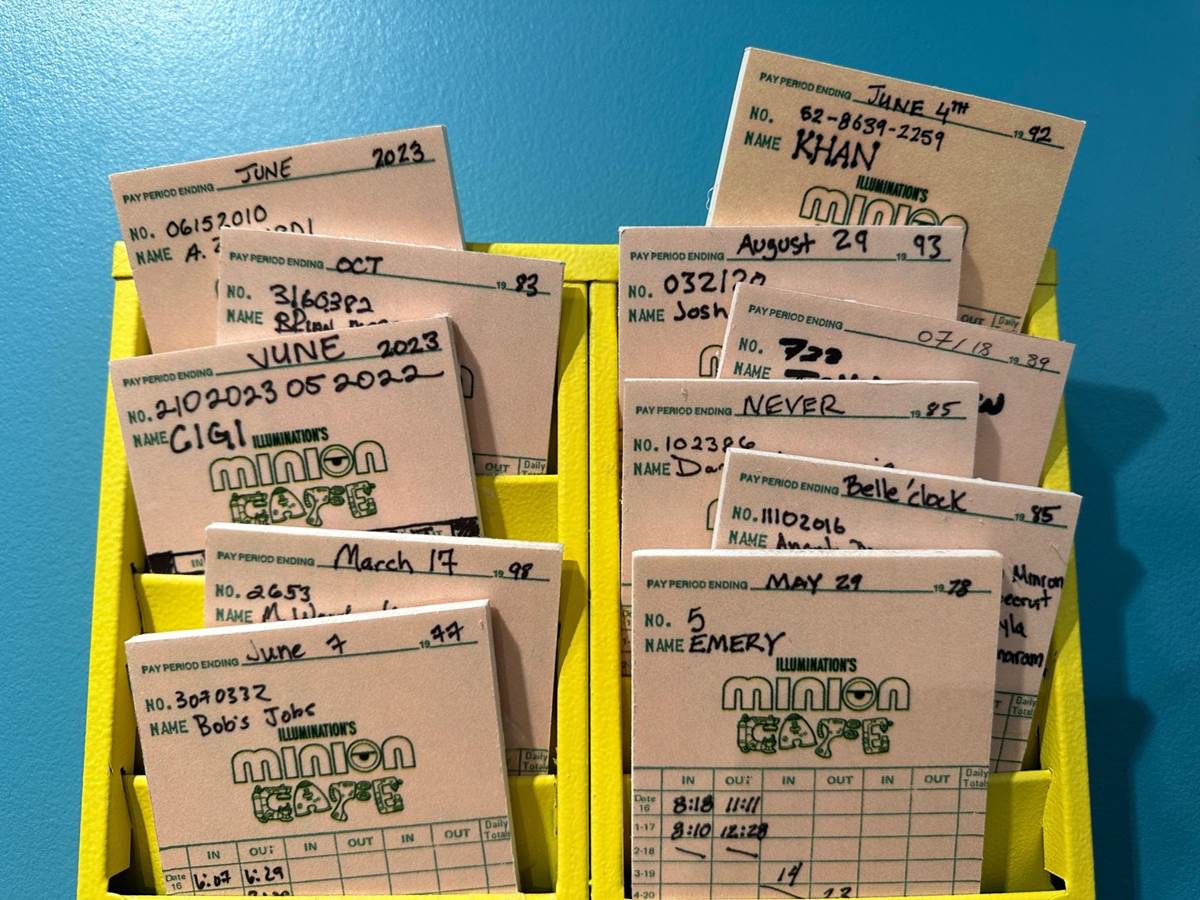 PAY PERIOD ENDING JUNE 2023
NO. 06152010
NAME A.
PAY PERIOD ENDING OCT 19 83
NO. 3160382
NAME BRIAN
PAY PERIOD ENDING JUNE 2023
NO. 210 2023 05 2022
NAME GIGI
ILLUMINATION'S
minion
CAFE
IN
OUT Daily
PAY PERIOD ENDING March 17 19 98
NO. 2653
NAME M.
PAY PERIOD ENDING June 7 19 77
NO. 3070332
NAME Bob's Jobs
ILLUMINATION'S
minion
CAFE
Daily Totals
IN OUT IN OUT IN OUT Daily Totals
Date 16 6:07 6:29
PAY PERIOD ENDING JUNE 4TH 19 92
NO. 62-8639-2259
NAME KHAN
ILLUMINATION'S
minion
OUT Daily
PAY PERIOD ENDING August 29 19 93
NO. 032120
NAME Josh
PAY PERIOD ENDING 07/18 19 89
NO.
NAME
PAY PERIOD ENDING NEVER 19 85
NO. 102386
NAME
PAY PERIOD ENDING Belle 'clock 19 85
NO. 11102016
NAME
Minion
Daily Totals
PAY PERIOD ENDING MAY 29 19 78
NO. 5
NAME EMERY
ILLUMINATION'S
minion
CAFE
IN OUT IN OUT IN OUT Daily Totals
Date 16 8:18 11:11
1-17 8:10 12:28
2-18
3-19 14
4-20